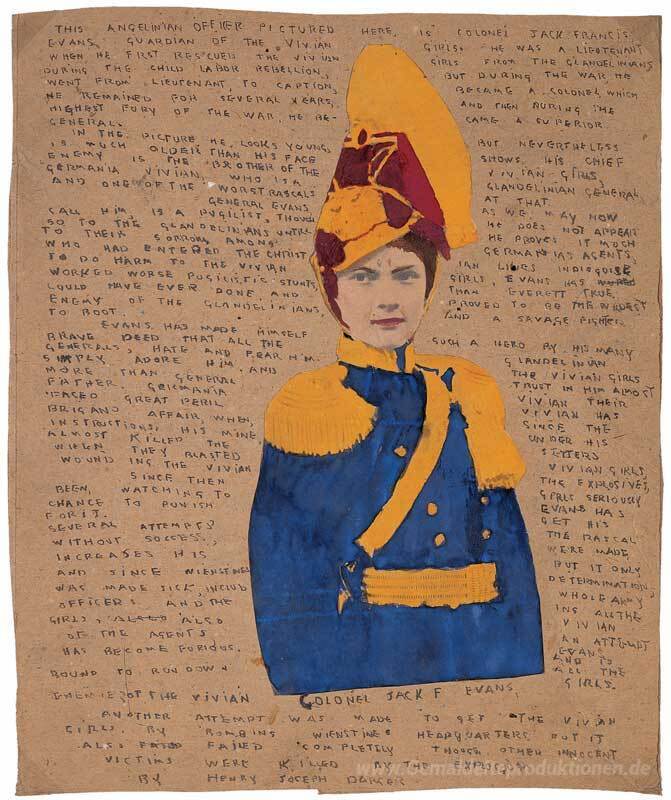 THIS ANGELINIAN OFFICER PICTURED HERE, IS COLONEL JACK FRANCIS
EVANS, GUARDIAN OF THE VIVIAN GIRLS. HE WAS A LIEUTENANT
WHEN HE FIRST RESCUED THE VIVIAN GIRLS FROM THE GLANDELINIANS
DURING THE CHILD LABOR REBELLION, BUT DURING THE WAR HE
WENT FROM LIEUTENANT, TO CAPTION, BECAME A COLONEL WHICH
HE REMAINED FOR SEVERAL YEARS, AND THEN DURING THE
HIGHEST FURY OF THE WAR, HE BE- CAME A SUPERIOR
GENERAL.
IN THE PICTURE HE LOOKS YOUNG, BUT NEVERTHELESS
IS MUCH OLDER THAN HIS FACE SHOWS. HIS CHIEF
ENEMY IS THE BROTHER OF THE VIVIAN GIRLS,
GERMANIA VIVIAN, WHO IS A GLANDELINIAN GENERAL
AND ONE OF THE WORST RASCALS AT THAT.
GENERAL EVANS AS WE MAY NOW
CALL HIM, IS A PUGILIST, THOUGH HE DOES NOT APPEAR
SO TO THE GLANDELINIANS UNTIL HE PROVES IT MUCH
TO THEIR SORROW, AMONG GERMANIAS AGENTS,
WHO HAD ENTERED THE CHRIST IAN LINES INDISGUISE
TO DO HARM TO THE VIVIAN GIRLS, EVANS HAS
WORKED WORSE PUGILISTIC STUNTS, THAN EVERETT TRUE,
COULD HAVE EVER DONE AND PROVED TO BE THE WILDEST
ENEMY OF THE GLANDELINIANS, AND A SAVAGE FIGHTER
TO BOOT.
EVANS HAS MADE HIMSELF SUCH A HERO BY HIS MANY
BRAVE DEED THAT ALL THE GLANDELINIAN
GENERALS, HATE AND FEAR HIM. THE VIVIAN GIRLS
SIMPLY ADORE HIM, AND TRUST IN HIM ALMOST
MORE THAN GENERAL VIVIAN THEIR
FATHER. GERMANIA VIVIAN HAS
FACED GREAT PERIL SINCE THE
BRIGAND AFFAIR, WHEN, UNDER HIS
INSTRUCTIONS, HIS MINE SETTERS
ALMOST KILLED THE VIVIAN GIRLS
WHEN THEY BLASTED THE EXPLOSIVES,
WOUND ING THE VIVIAN GIRLS SERIOUSLY
SINCE THEN EVANS HAS
BEEN, WATCHING TO GET HIS
CHANCE TO PUNISH THE RASCAL
FOR IT.
SEVERAL ATTEMPTS WERE MADE
WITHOUT SUCCESS, BUT IT ONLY
INCREASES HIS DETERMINATION,
AND SINCE WIENSTINES WHOLE ARMY
WAS MADE SICK, INCLUD ING ALL THE
OFFICERS AND THE VIVIAN
GIRLS, ALSO AN ATTEMPT
OF THE AGENTS EVANS
HAS BECOME FURIOUS. AND IS
BOUND TO RUN DOWN ALL THE
ENEMIES OF THE VIVIAN GIRLS.
COLONEL JACK F EVANS.
ANOTHER ATTEMPT WAS MADE TO GET THE VIVIAN
GIRLS BY BOMBING WIENSTINES HEADQUARTERS BUT IT
ALSO FAILED COMPLETELY THOUGH OTHER INNOCENT
VICTIMS WERE KILLED BY THE EXPLOSION
BY HENRY JOSEPH DARGER
www.bemalteneproduktionen.de